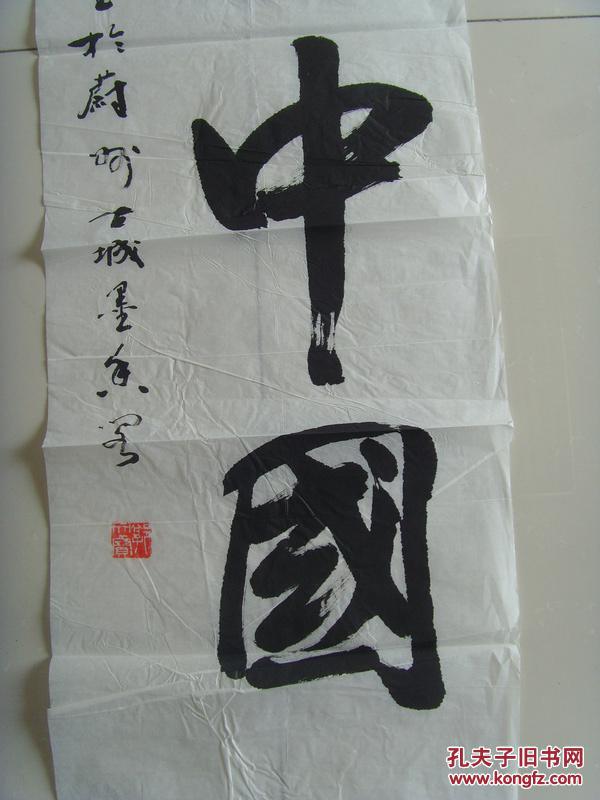 中國
於蔚州古城墨香閣
孔夫子旧书网
www.kongfz.com